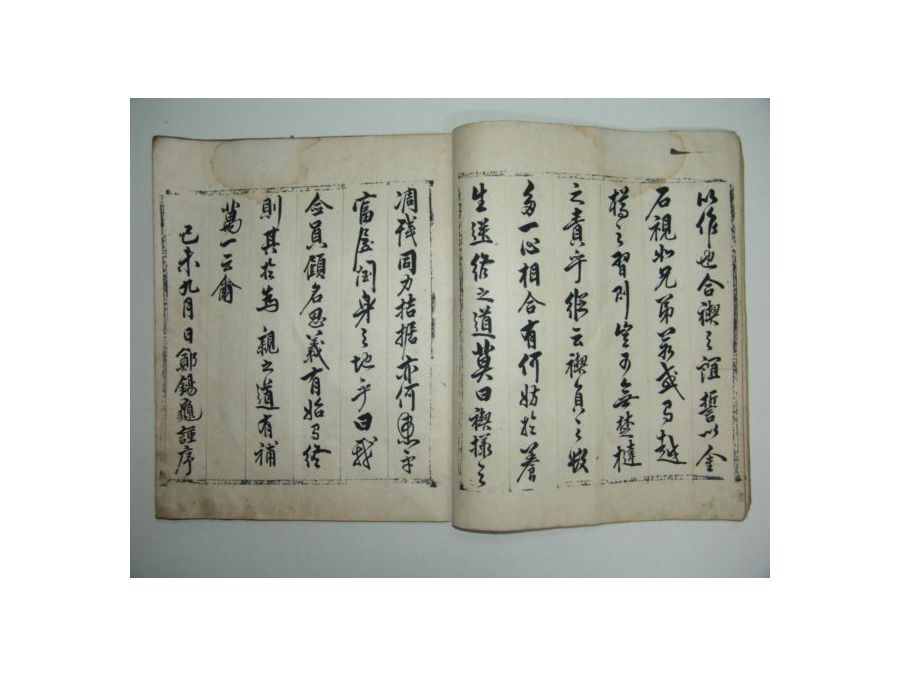 以作也合禊之誼誓以金
石視如兄弟若或有越
之習則豈可無楚撻
之責乎縱云禊員之數
多一心相合有何妨於養
生送終之道莫曰禊樣之
凋殘同力拮据亦何患乎
富屋潤身之地乎曰我
僉員顧名思義有始有終
則其於為親之道有補
萬一云爾
己未九月日鄭錫龜謹序